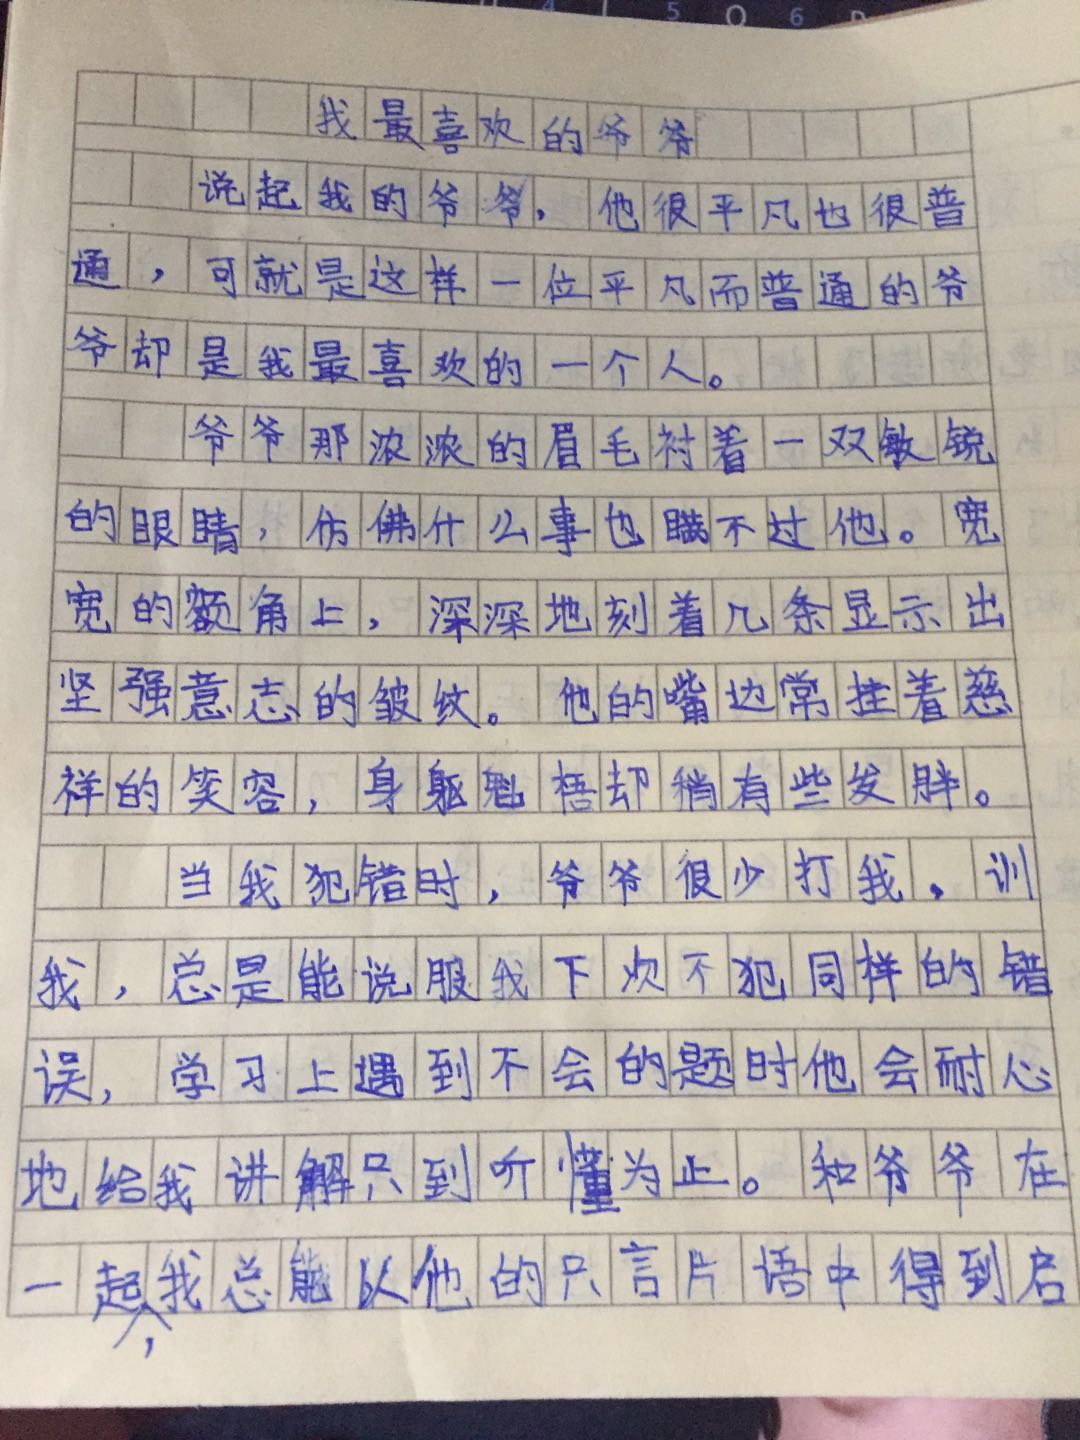 我最喜欢的爷爷
说起我的爷爷，他很平凡也很普
通，可就是这样一位平凡而普通的爷
爷却是我最喜欢的一个人。
爷爷那浓浓的眉毛衬着一双敏锐
的眼睛，仿佛什么事也瞒不过他。宽
宽的额角上，深深地刻着几条显示出
坚强意志的皱纹。他的嘴边常挂着慈
祥的笑容，身躯魁梧却稍有些发胖。
当我犯错时，爷爷很少打我，训
我，总是能说服我下次不犯同样的错
误，学习上遇到不会的题时他会耐心
地给我讲解只到听懂为止。和爷爷在
一起，我总能从他的只言片语中得到启